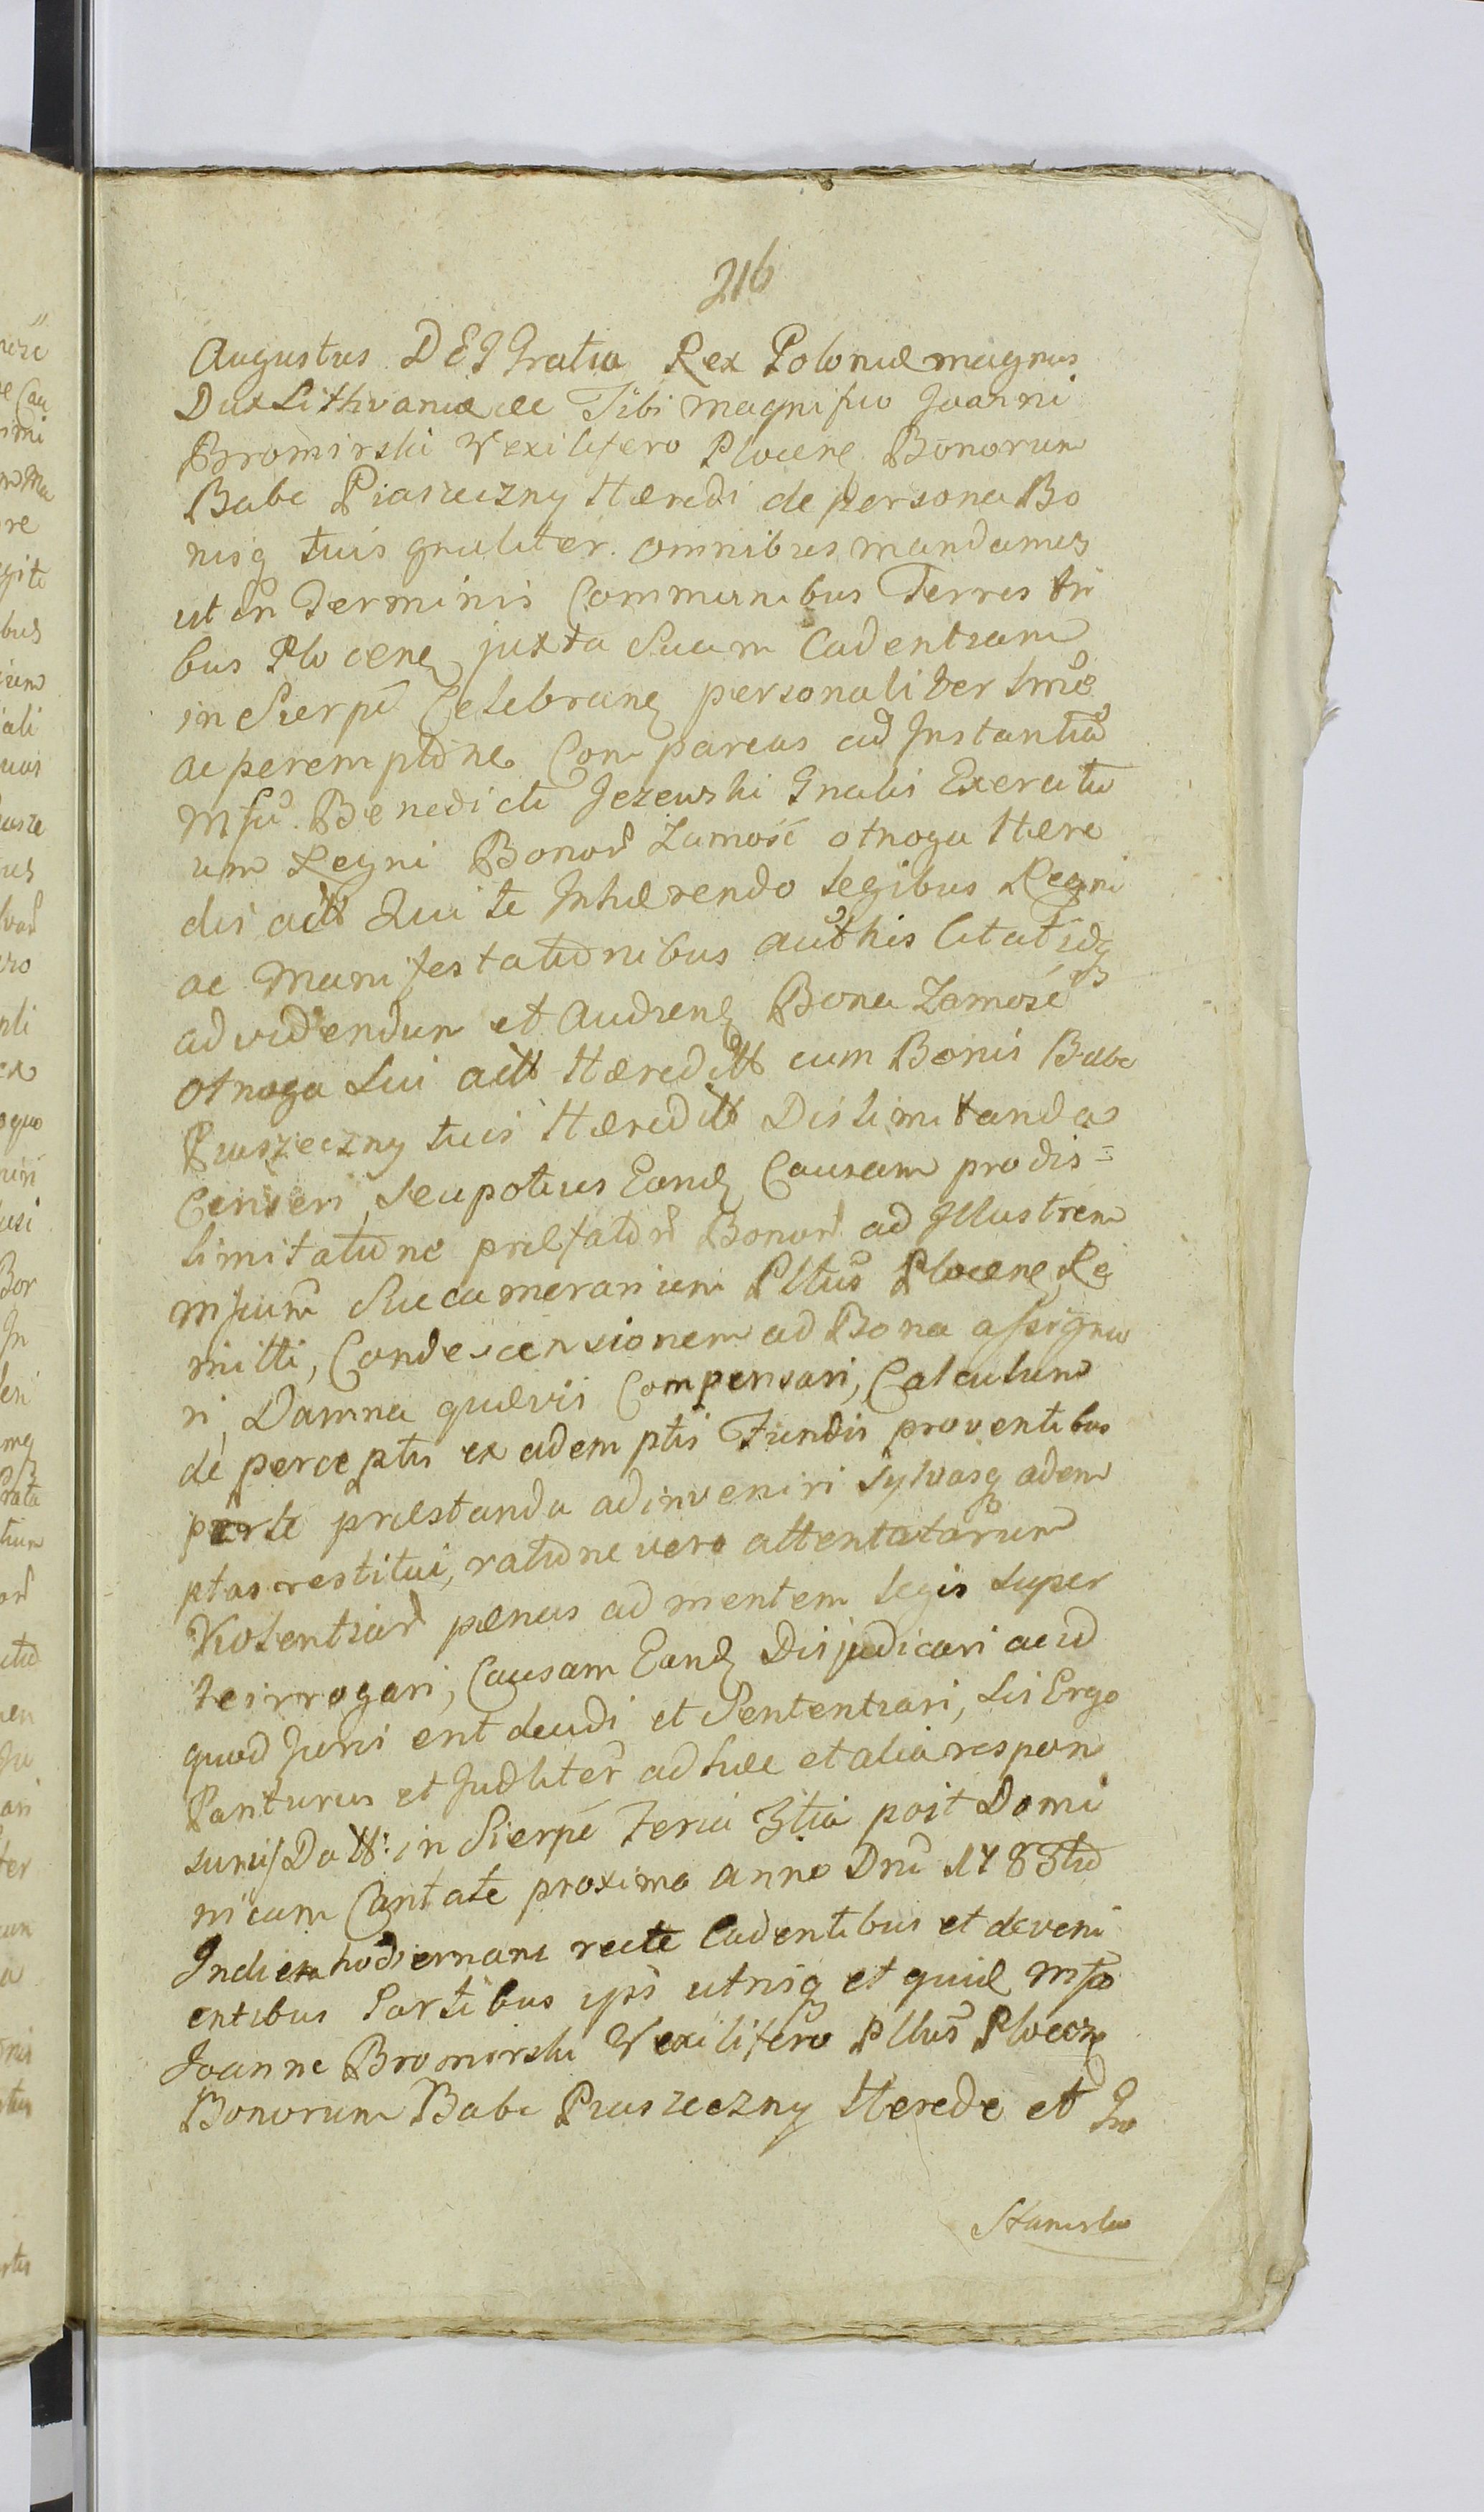 216
Augustus DEI Gratia Rex Poloniæ magnus
Dux Lithvaniæ &c Tibi magnifico Joanni
Bromirski Vexilifero Plocen Bonorum
Babe Piaszeczny Hæredi de persona Bo
nisq tuis gnaliter omnibus mandamus
ut in Terminis Communibus Terrestri
bus Plocen juxta Suam Cadentiam
in Sierpc Celebran personaliter
ac peremptõne Compareas ad Instantiã
Mfci Benedicti Jezewski Gnalis Exercitu
um Regni Bonor Zamość otnoga Hære
dis actt Qui te Inhærendo legibus Regni
ac Manifestatiõnibus authis Citat
ad videndum et Audien Bona Zamość
otnoga Sui actt Hæreditt cum Bonis Babe
Piaszeczny tuis Hæreditt Dislimitanda
Censeri, seu potius Eand Causam pro dis=
limitatiõne præfator Bonor ad Illustrem
Mfcum Succamerarium Pttus Plocen Re
mitti, Condescensionem ad Bona assigna
ri, Damna quævis Compensari, Calculum
de perceptis ex ademptis Fundis proventibus
per te præstanda adinveniri Sylvasq adem
ptas restitui, ratiõne vero attentatarum
Violentiar pænas ad mentem legis super
te irrogari, Causam Eand Disjudicari ac id
quod Juris erit decidi et Sententiari, Sis Ergo
Pariturus et Judliter ad hæc et alia respon
surus Datt: in Sierpc Feria 3tia post Domi
nicam Cantate proxima anno Dni 178
In diem hodiernam recte Cadentibus et deveni
entibus Partibus ipsis utrisq et quid Mfco
Joanne Bromirski Vexilifero Pttus Plocen
Bonorum Babe Piaszeczny Herede et In
Stanislao